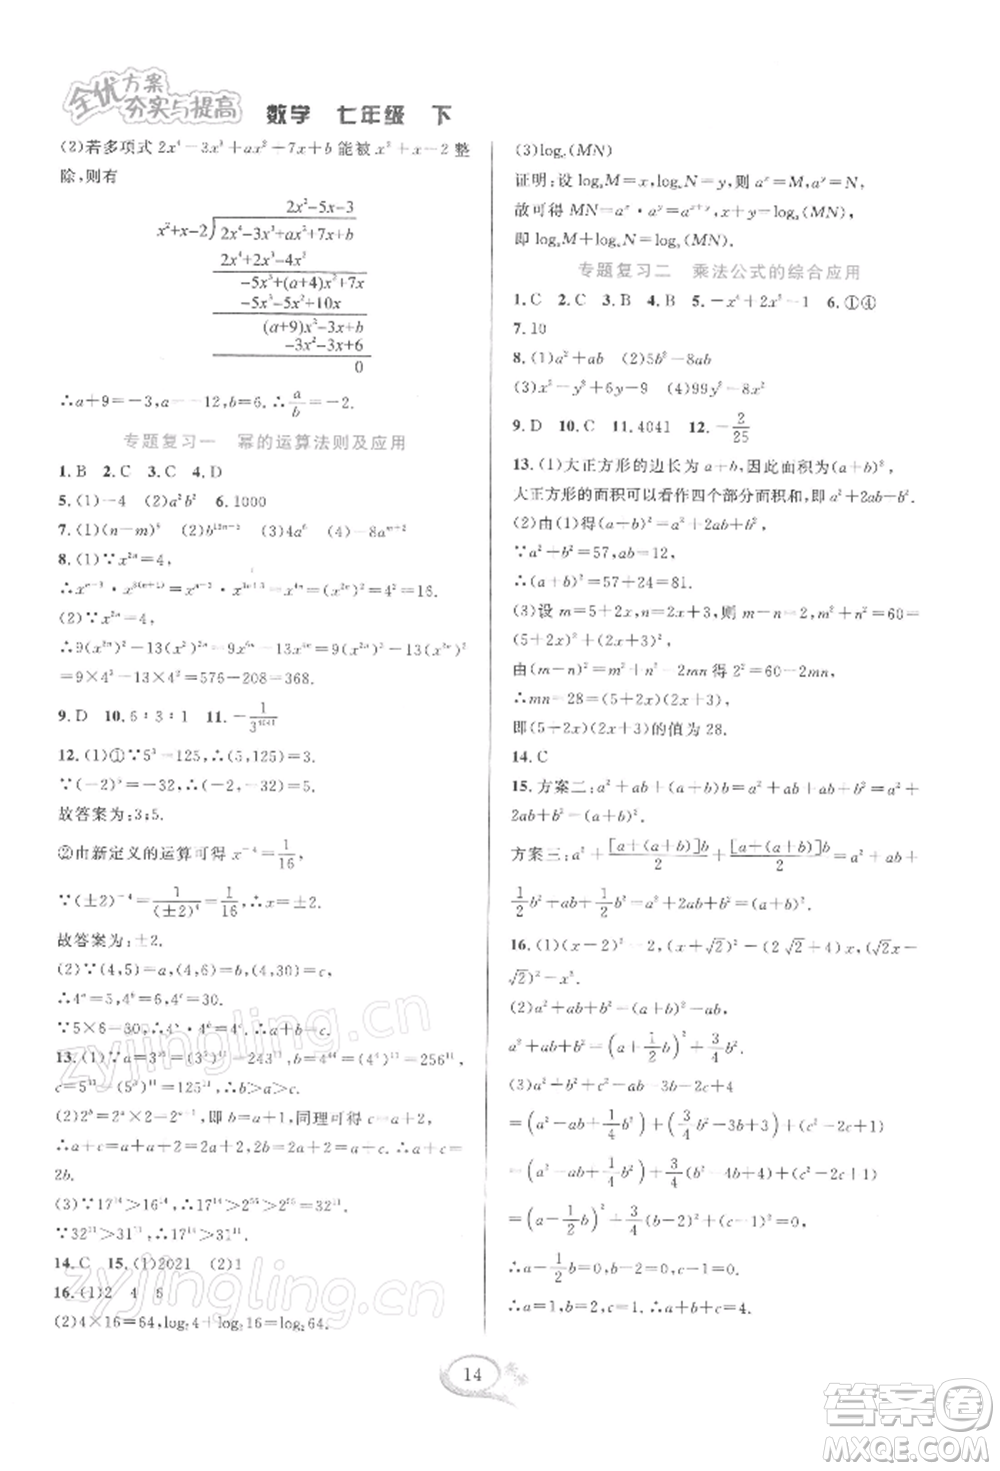 全优方案
夯实与提高 数学 七年级 下
(2)若多项式 2x⁴-3x³+ax²+7x+b 能被 x²+x-2 整
除,则有
2x²-5x-3
x²+x-2)2x⁴-3x³+ax²+7x+b
2x⁴+2x³-4x²
-5x³+(a+4)x²+7x
-5x³-5x²+10x
(a+9)x²-3x+b
-3x²-3x+6
0
∴a+9=-3,a=-12,b=6.∴a/b=-2.
专题复习一 幂的运算法则及应用
1.B 2.C 3.C 4.D
5.(1)-4 (2)a²b² 6.1000
7.(1)(n-m)⁶ (2)b¹²ⁿ⁻² (3)4a⁶ (4)-8aᵐ⁺²
8.(1)∵x²ⁿ=4,
∴xⁿ⁻³·x³⁽ⁿ⁺¹⁾=xⁿ⁻³·x³ⁿ⁺³=x⁴ⁿ=(x²ⁿ)²=4²=16.
(2)∵x²ⁿ=4,
∴9(x³ⁿ)²-13(x²)²ⁿ=9x⁶ⁿ-13x⁴ⁿ=9(x²ⁿ)³-13(x²ⁿ)²
=9×4³-13×4²=576-208=368.
9.D 10.6:3:1
12.(1)①∵5³=125,∴(5,125)=3.
∵(-2)⁵=-32,∴(-2,-32)=5.
故答案为:3;5.
②由新定义的运算可得 x⁻⁴=1/16,
∵(±2)⁻⁴=1/(±2)⁴=1/16,∴x=±2.
故答案为:±2.
(2)∵(4,5)=a,(4,6)=b,(4,30)=c,
∴4ᵃ=5,4ᵇ=6,4ᶜ=30.
∵5×6=30,∴4ᵃ·4ᵇ=4ᶜ.∴a+b=c.
13.(1)∵a=3⁵⁵=(3⁵)¹¹=243¹¹,b=4⁴⁴=(4⁴)¹¹=256¹¹,
c=5³³=(5³)¹¹=125¹¹,∴b>a>c.
(2)2ᵇ=2ᵃ×2=2ᵃ⁺¹,即 b=a+1,同理可得 c=a+2,
∴a+c=a+a+2=2a+2,2b=2(a+1)=2a+2.∴a+c=
2b.
(3)∵17¹⁴>16¹⁴,∴17¹⁴>2⁵⁶>2⁵⁵=32¹¹.
∵32¹¹>31¹¹,∴17¹⁴>31¹¹.
14.C 15.(1)2021 (2)1
16.(1)2 4 6
(2)4×16=64,log₂4+log₂16=log₂64.
(3)logₐ(MN)
证明:设 logₐM=x,logₐN=y,则 aˣ=M,aʸ=N,
故可得 MN=aˣ·aʸ=aˣ⁺ʸ,x+y=logₐ(MN),
即 logₐM+logₐN=logₐ(MN).
专题复习二 乘法公式的综合应用
1.C 2.C 3.B 4.B 5.-x⁴+2x²-1 6.①④
7.10
8.(1)a²+ab (2)5b²-8ab
(3)x²-y²+6y-9 (4)99y²-8x²
9.D 10.C 11.4041 12.-2/25
13.(1)大正方形的边长为 a+b,因此面积为(a+b)²,
大正方形的面积可以看作四个部分面积的和,即 a²+2ab+b².
(2)由(1)得(a+b)²=a²+2ab+b²,
∵a²+b²=57,ab=12,
∴(a+b)²=57+24=81.
(3)设 m=5+2x,n=2x+3,则 m-n=2,m²+n²=60=
(5+2x)²+(2x+3)²,
由(m-n)²=m²+n²-2mn 得 2²=60-2mn,
∴mn=28=(5+2x)(2x+3),
即(5+2x)(2x+3)的值为 28.
14.C
15.方案二:a²+ab+(a+b)b=a²+ab+ab+b²=a²+
2ab+b²=(a+b)².
方案三:a²+[a+(a+b)]b/2+[a+(a+b)]b/2=a²+ab+
1/2b²+ab+1/2b²=a²+2ab+b²=(a+b)².
16.(1)(x-2)²+2x,(x+√2)²-(2√2+4)x,(√2x-
√2)²-x².
(2)a²+ab+b²=(a+b)²-ab,
a²+ab+b²=(a+1/2b)²+3/4b².
(3)a²+b²+c²-ab-3b-2c+4
=(a²-ab+1/4b²)+(3/4b²-3b+3)+(c²-2c+1)
=(a²-ab+1/4b²)+3/4(b²-4b+4)+(c²-2c+1)
=(a-1/2b)²+3/4(b-2)²+(c-1)²=0,
∴a-1/2b=0,b-2=0,c-1=0,
∴a=1,b=2,c=1.∴a+b+c=4.
14
zyjingling.cn
zyjingling.cn
答案圈
MXQE.COM